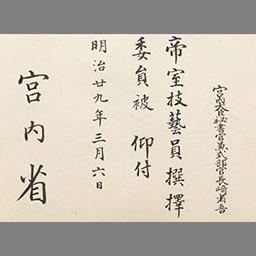 宮内大臣秘書官兼式部官長崎省吾
帝室技藝員撰擇
委員被 仰付
明治廿九年三月六日
宮内省